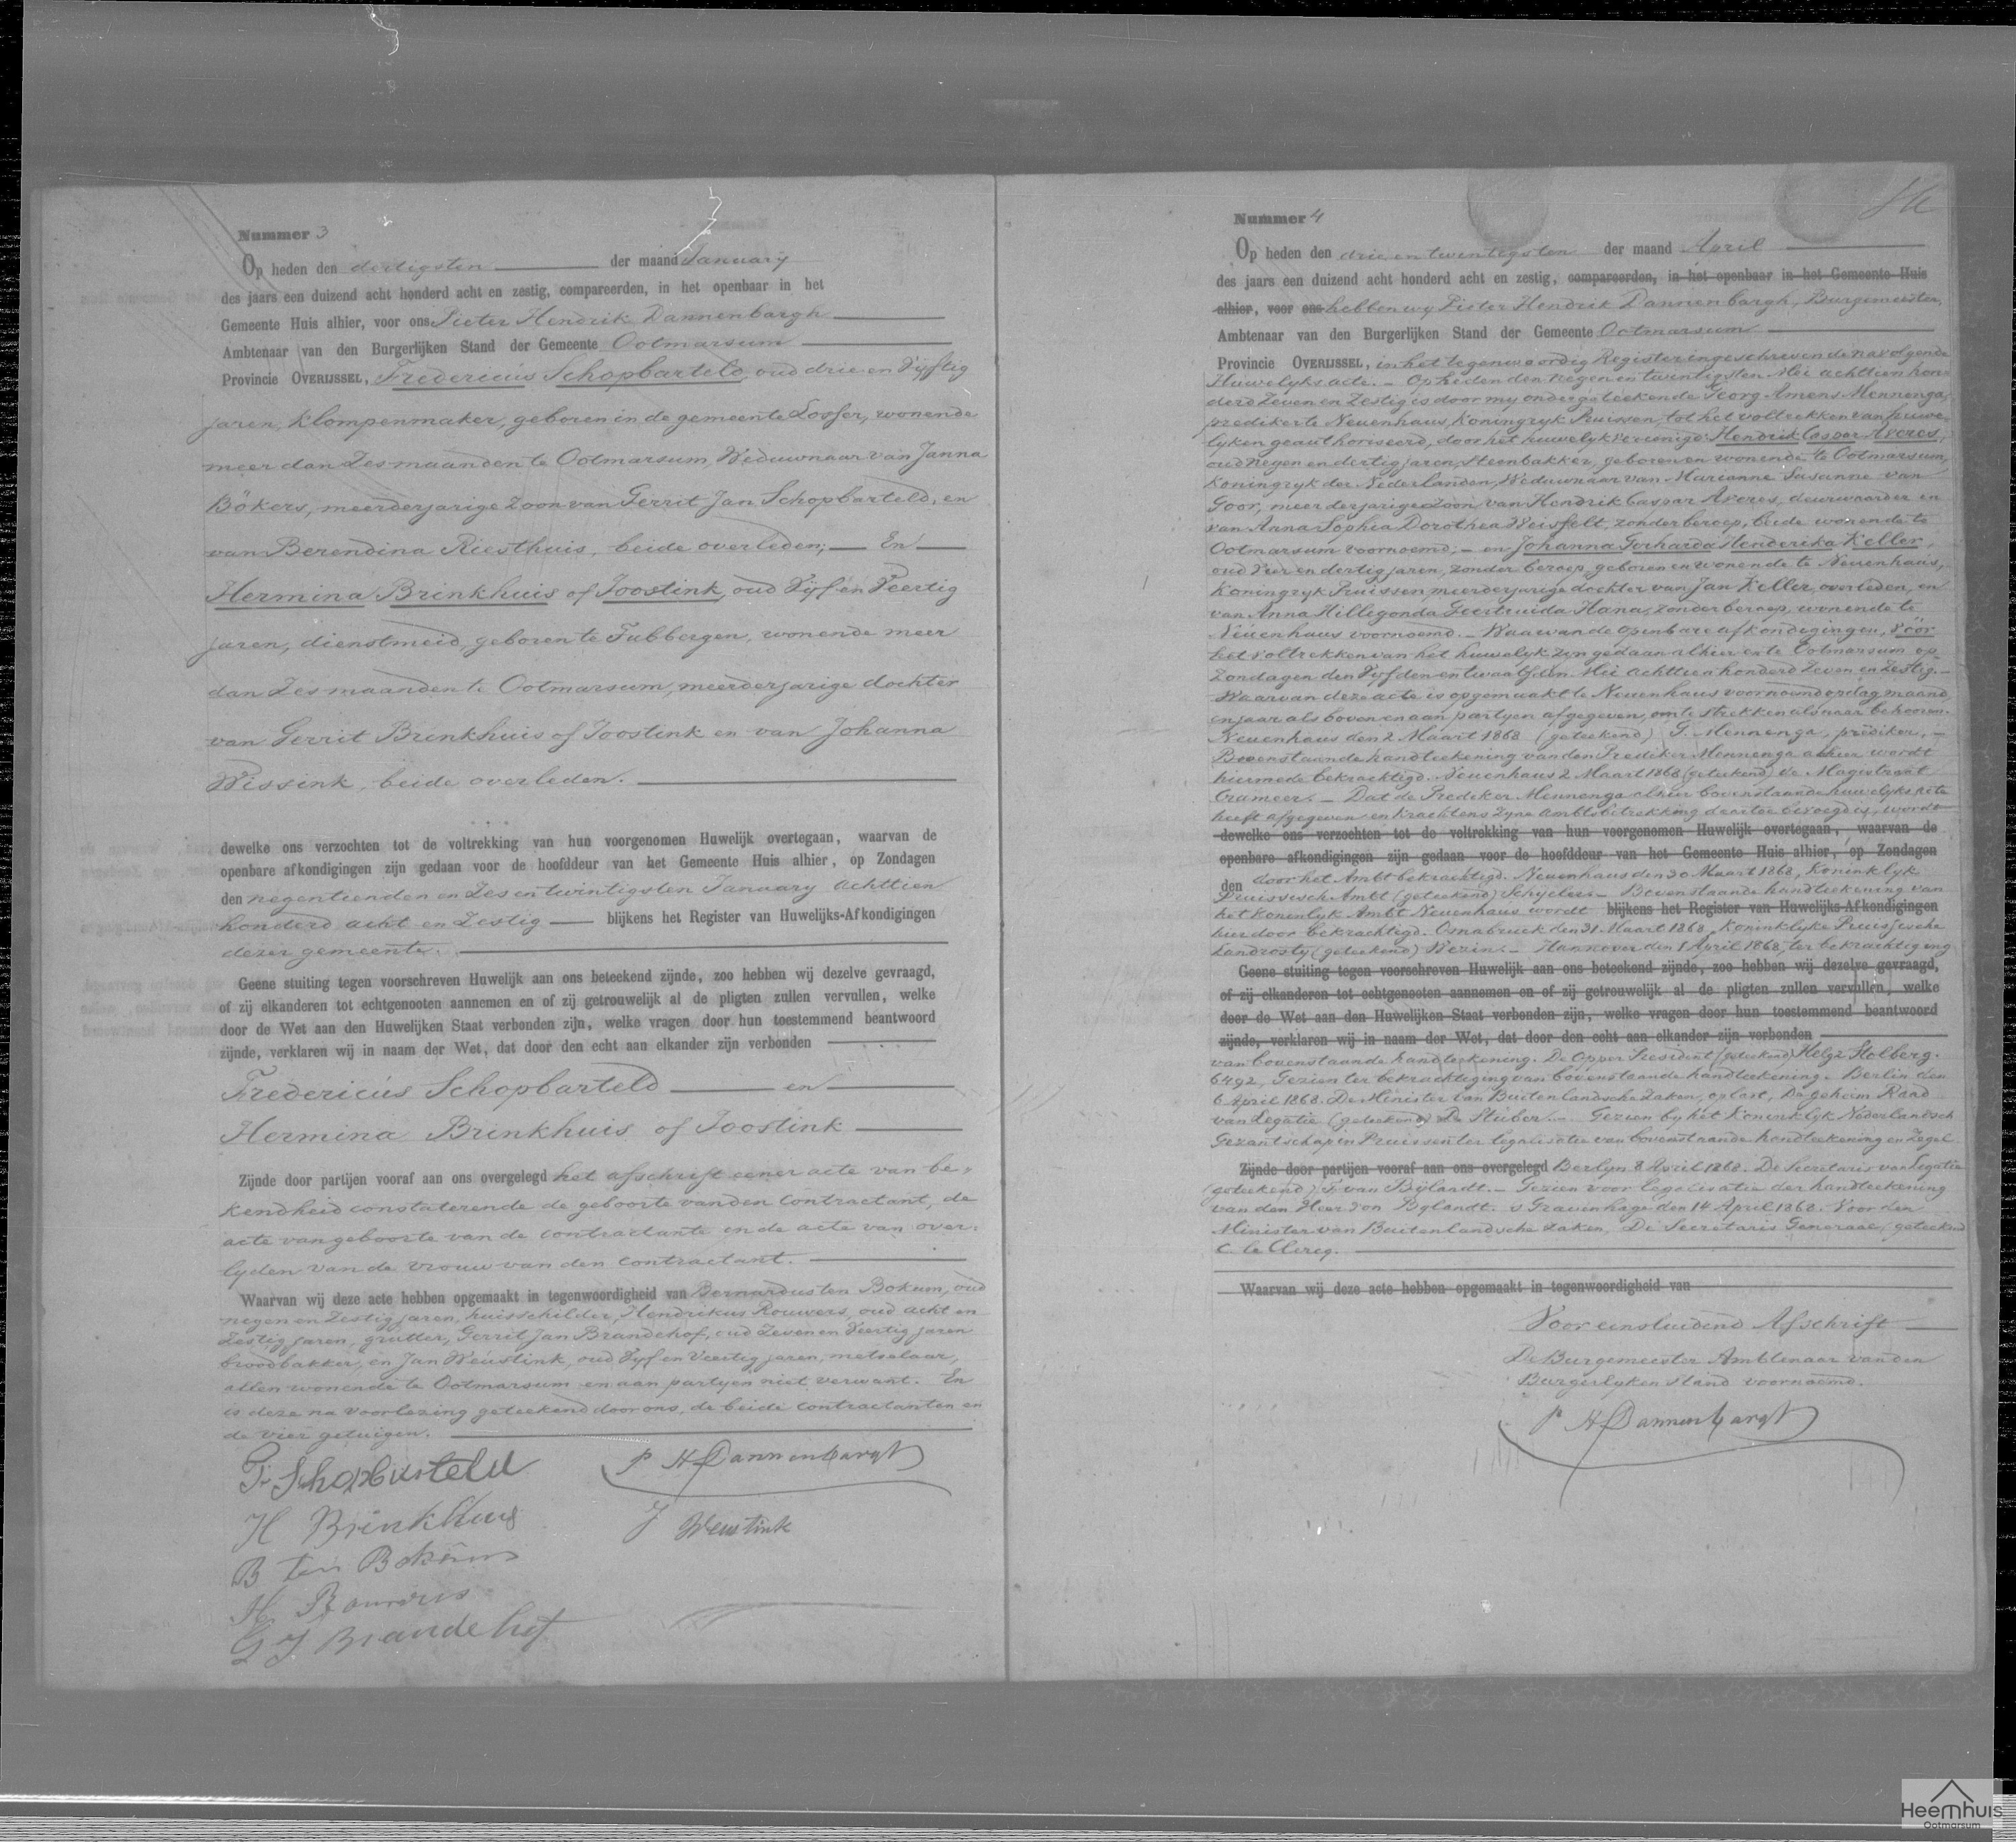 Nummer 3
Op heden den dertigsten der maand January
des jaars een duizend acht honderd acht en zestig, compareerden, in het openbaar in het
Gemeente Huis alhier, voor ons Pieter Hendrik Dannenbargh
Ambtenaar van den Burgerlijken Stand der Gemeente Ootmarsum
Provincie OVERIJSSEL, Fredericus Schopbarteld, oud drie en Vyftig
jaren, Klompenmaker, geboren in de gemeente Losser, wonende
meer dan Zes maanden te Ootmarsum, Weduwnaar van Janna
Bökers, meerderjarige Zoon van Gerrit Jan Schopbarteld, en
van Berendina Riesthuis, beide overleden; En
Hermina Brinkhuis of Joostink, oud Vyf en Veertig
jaren, dienstmeid, geboren te Tubbergen, wonende meer
dan Zes maanden te Ootmarsum, meerderjarige dochter
van Gerrit Brinkhuis of Joostink en van Johanna
Wissink, beide overleden.
dewelke ons verzochten tot de voltrekking van hun voorgenomen Huwelijk overtegaan, waarvan de
openbare afkondigingen zijn gedaan voor de hoofddeur van het Gemeente Huis alhier, op Zondagen
den negentienden en Zes en twintigsten January achttien
honderd acht en Zestig blijkens het Register van Huwelijks-Afkondigingen
dezer gemeente.
Geene stuiting tegen voorschreven Huwelijk aan ons beteekend zijnde, zoo hebben wij dezelve gevraagd,
of zij elkanderen tot echtgenooten aannemen en of zij getrouwelijk al de pligten zullen vervullen, welke
door de Wet aan den Huwelijken Staat verbonden zijn, welke vragen door hun toestemmend beantwoord
zijnde, verklaren wij in naam der Wet, dat door den echt aan elkander zijn verbonden
Fredericus Schopbarteld en
Hermina Brinkhuis of Joostink
Zijnde door partijen vooraf aan ons overgelegd het afschrift eener acte van be-
kendheid constaterende de geboorte van den Contractant, de
acte van geboorte van de contractante en de acte van over-
lyden van de vrouw van den contractant.
Waarvan wij deze acte hebben opgemaakt in tegenwoordigheid van Bernardus ten Bokum, oud
negen en Zestig jaren, huisschilder, Hendrikus Rouwers, oud acht en
Zestig jaren, grutter, Gerrit Jan Brandehof, oud Zeven en Veertig jaren
broodbakker, en Jan Weustink, oud Vyf en Veertig jaren, metselaar,
allen wonende te Ootmarsum en aan partyen niet verwant. En
is deze na voorlezing geteekend door ons, de beide contractanten en
de vier getuigen.
F Schopbarteld
P H Dannenbargh
H Brinkhuis
J Weustink
B ten Bokum
H Rouwers
G J Brandehof
Nummer 4
Op heden den drie en twintigsten der maand April
des jaars een duizend acht honderd acht en zestig, compareerden, in het openbaar in het Gemeente Huis
alhier, voor ons hebben wy Pieter Hendrik Dannenbargh, Burgemeester,
Ambtenaar van den Burgerlijken Stand der Gemeente Ootmarsum
Provincie OVERIJSSEL, in het tegenwoordig Register ingeschreven de navolgende
Huwelyks acte. - Op heden den negen en twintigsten Mei achttien hon-
derd Zeven en Zestig is door my ondergeteekende Georg Amens Mennenga,
prediker te Neuenhaus, Koningryk Pruissen, tot het voltrekken van huwe-
lyken geauthoriseerd, door het huwelyk vereenigd: Hendrik Caspar Averes,
oud negen en dertig jaren, steenbakker, geboren en wonende te Ootmarsum,
Koningryk der Nederlanden, Weduwnaar van Marianne Susanne van
Goor, meerderjarige Zoon van Hendrik Caspar Averes, deurwaarder en
van Anna Sophia Dorothea Weisfelt, zonder beroep, beide wonende te
Ootmarsum voornoemd; - en Johanna Gerharda Henderika Keller,
oud Vier en dertig jaren, zonder beroep, geboren en wonende te Neuenhaus,
Koningryk Pruissen, meerderjarige dochter van Jan Keller, overleden, en
van Anna Hillegonda Geertruida Hana, zonder beroep, wonende te
Neuenhaus voornoemd. - Waarvan de openbare afkondigingen, Vóór
het voltrekken van het huwelyk zyn gedaan alhier en te Ootmarsum op
Zondagen den Vyfden en twaalfden Mei achttien honderd Zeven en Zestig. -
Waarvan deze acte is opgemaakt te Neuenhaus voornoemd op dag, maand
en jaar als boven en aan partyen afgegeven, om te strekken als naar behooren.
Neuenhaus den 2 Maart 1868 (geteekend) G. Mennenga, prediker, -
Bovenstaande handteekening van den Prediker Mennenga alhier wordt
hiermede bekrachtigd. Neuenhaus 2 Maart 1868 (geteekend) de Magistraat
Crameer. - Dat de Prediker Mennenga alhier bovenstaande huwelyks acte
heeft afgegeven en krachtens Zyne ambtsbetrekking daartoe bevoegd is, wordt
dewelke ons verzochten tot de voltrekking van hun voorgenomen Huwelijk overtegaan, waarvan de
openbare afkondigingen zijn gedaan voor de hoofddeur van het Gemeente Huis alhier, op Zondagen
den door het Ambt bekrachtigd. Neuenhaus den 30 Maart 1868, Koninklyk
Pruissisch Ambt (geteekend) - Bovenstaande handteekening van
het Koninlyk Ambt Neuenhaus wordt blijkens het Register van Huwelijks-Afkondigingen
hierdoor bekrachtigd. Osnabruck den 31 Maart 1868, Koninklyke Pruissische
Landrosty (geteekend) Wezin. - Hannover den 1 April 1868, ter bekrachtiging
Geene stuiting tegen voorschreven Huwelijk aan ons beteekend zijnde, zoo hebben wij dezelve gevraagd,
of zij elkanderen tot echtgenooten aannemen en of zij getrouwelijk al de pligten zullen vervullen, welke
door de Wet aan den Huwelijken Staat verbonden zijn, welke vragen door hun toestemmend beantwoord
zijnde, verklaren wij in naam der Wet, dat door den echt aan elkander zijn verbonden
van bovenstaande handteekening. De Opper President (geteekend) Stolberg.
6492, Gezien ter bekrachtiging van bovenstaande handteekening. Berlin den
6 April 1868. De Minister van Buitenlandsche Zaken, op last, De geheim Raad
van Legatie (geteekend) De Stüber. - Gezien by het Koninklyk Nederlandsch
Gezantschap in Pruissen ter legalisatie van bovenstaande handteekening en Zegel.
Zijnde door partijen vooraf aan ons overgelegd Berlyn 8 April 1868. De Secretaris van Legatie
(geteekend) F. van Bylandt. - Gezien voor legalisatie der handteekening
van den Heer Von Bylandt. s Gravenhage den 14 April 1868. Voor den
Minister van Buitenlandsche Zaken, De Secretaris Generaal, geteekend
C. le Clercq.
Waarvan wij deze acte hebben opgemaakt in tegenwoordigheid van
Voor eensluidend Afschrift
De Burgemeester Ambtenaar van den
Burgerlyken stand voornoemd.
P H Dannenbargh
Heemhuis
Ootmarsum